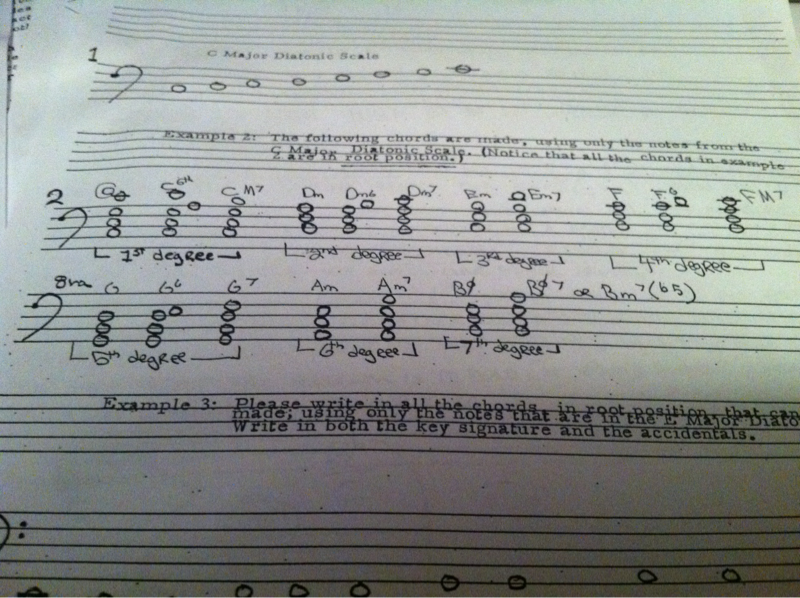 1 C Major Diatonic Scale
Example 2: The following chords are made, using only the notes from the
C Major Diatonic Scale. (Notice that all the chords in example
2 are in root position.)
2 C C6th CM7 Dm Dm6 Dm7 Em Em7 F F6 FM7
1st degree 2nd degree 3rd degree 4th degree
8va G G6 G7 Am Am7 Bø Bø7 or Bm7(b5)
5th degree 6th degree 7th degree
Example 3: Please write in all the chords, in root position, that can
made; using only the notes that are in the E Major Diato
Write in both the key signature and the accidentals.